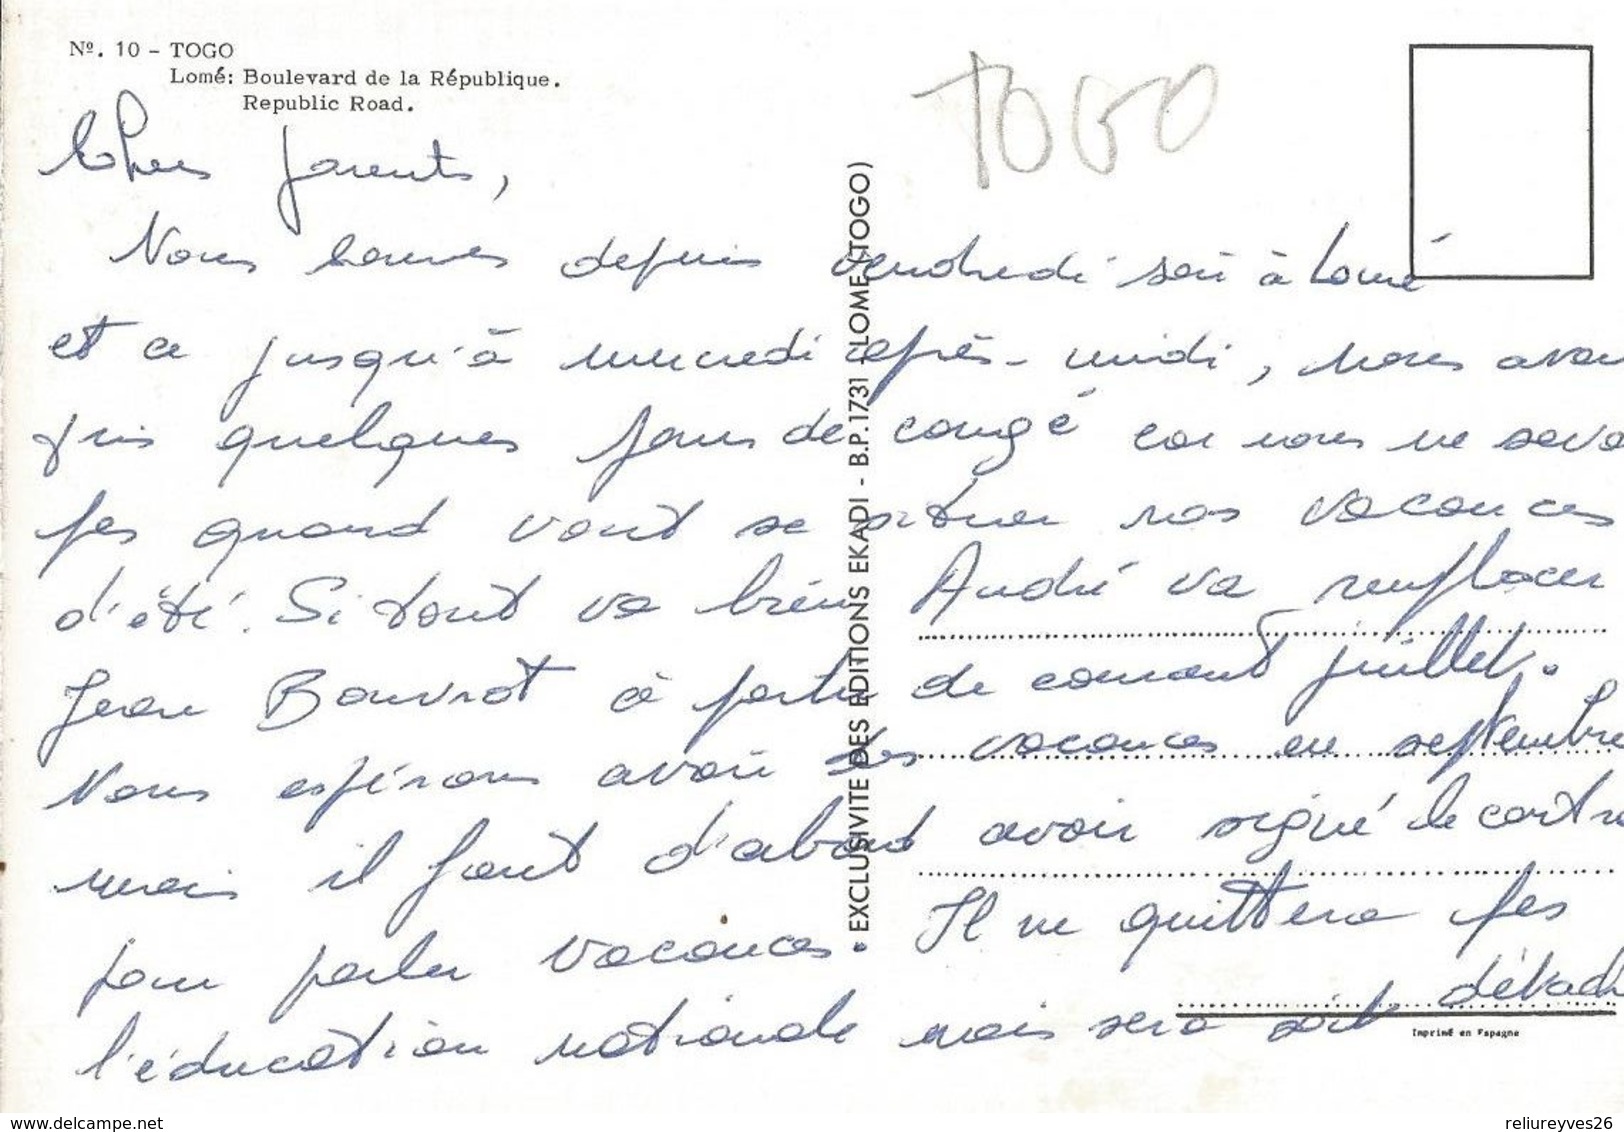 Nº. 10 – TOGO
Lomé: Boulevard de la République.
Republic Road.
TOGO
Chers parents,
Nous sommes depuis vendredi soir à Lomé
et ce jusqu'à mercredi après-midi, nous avons
pris quelques jours de congé car nous ne savo
pas quand vont se situer nos vacances
d'été. Si tout va bien André va remplacer
Jean Bouvrot à partir de courant juillet.
Nous espérons avoir des vacances en septembre
mais il faut d'abord avoir signé le contra
pour parler vacances. Il ne quittera pas
l'éducation nationale mais sera soit détach
EXCLUSIVITE DES EDITIONS EKADI - B.P. 1731 - LOME (TOGO)
Imprimé en Espagne
delcampe.net
reliureyves26